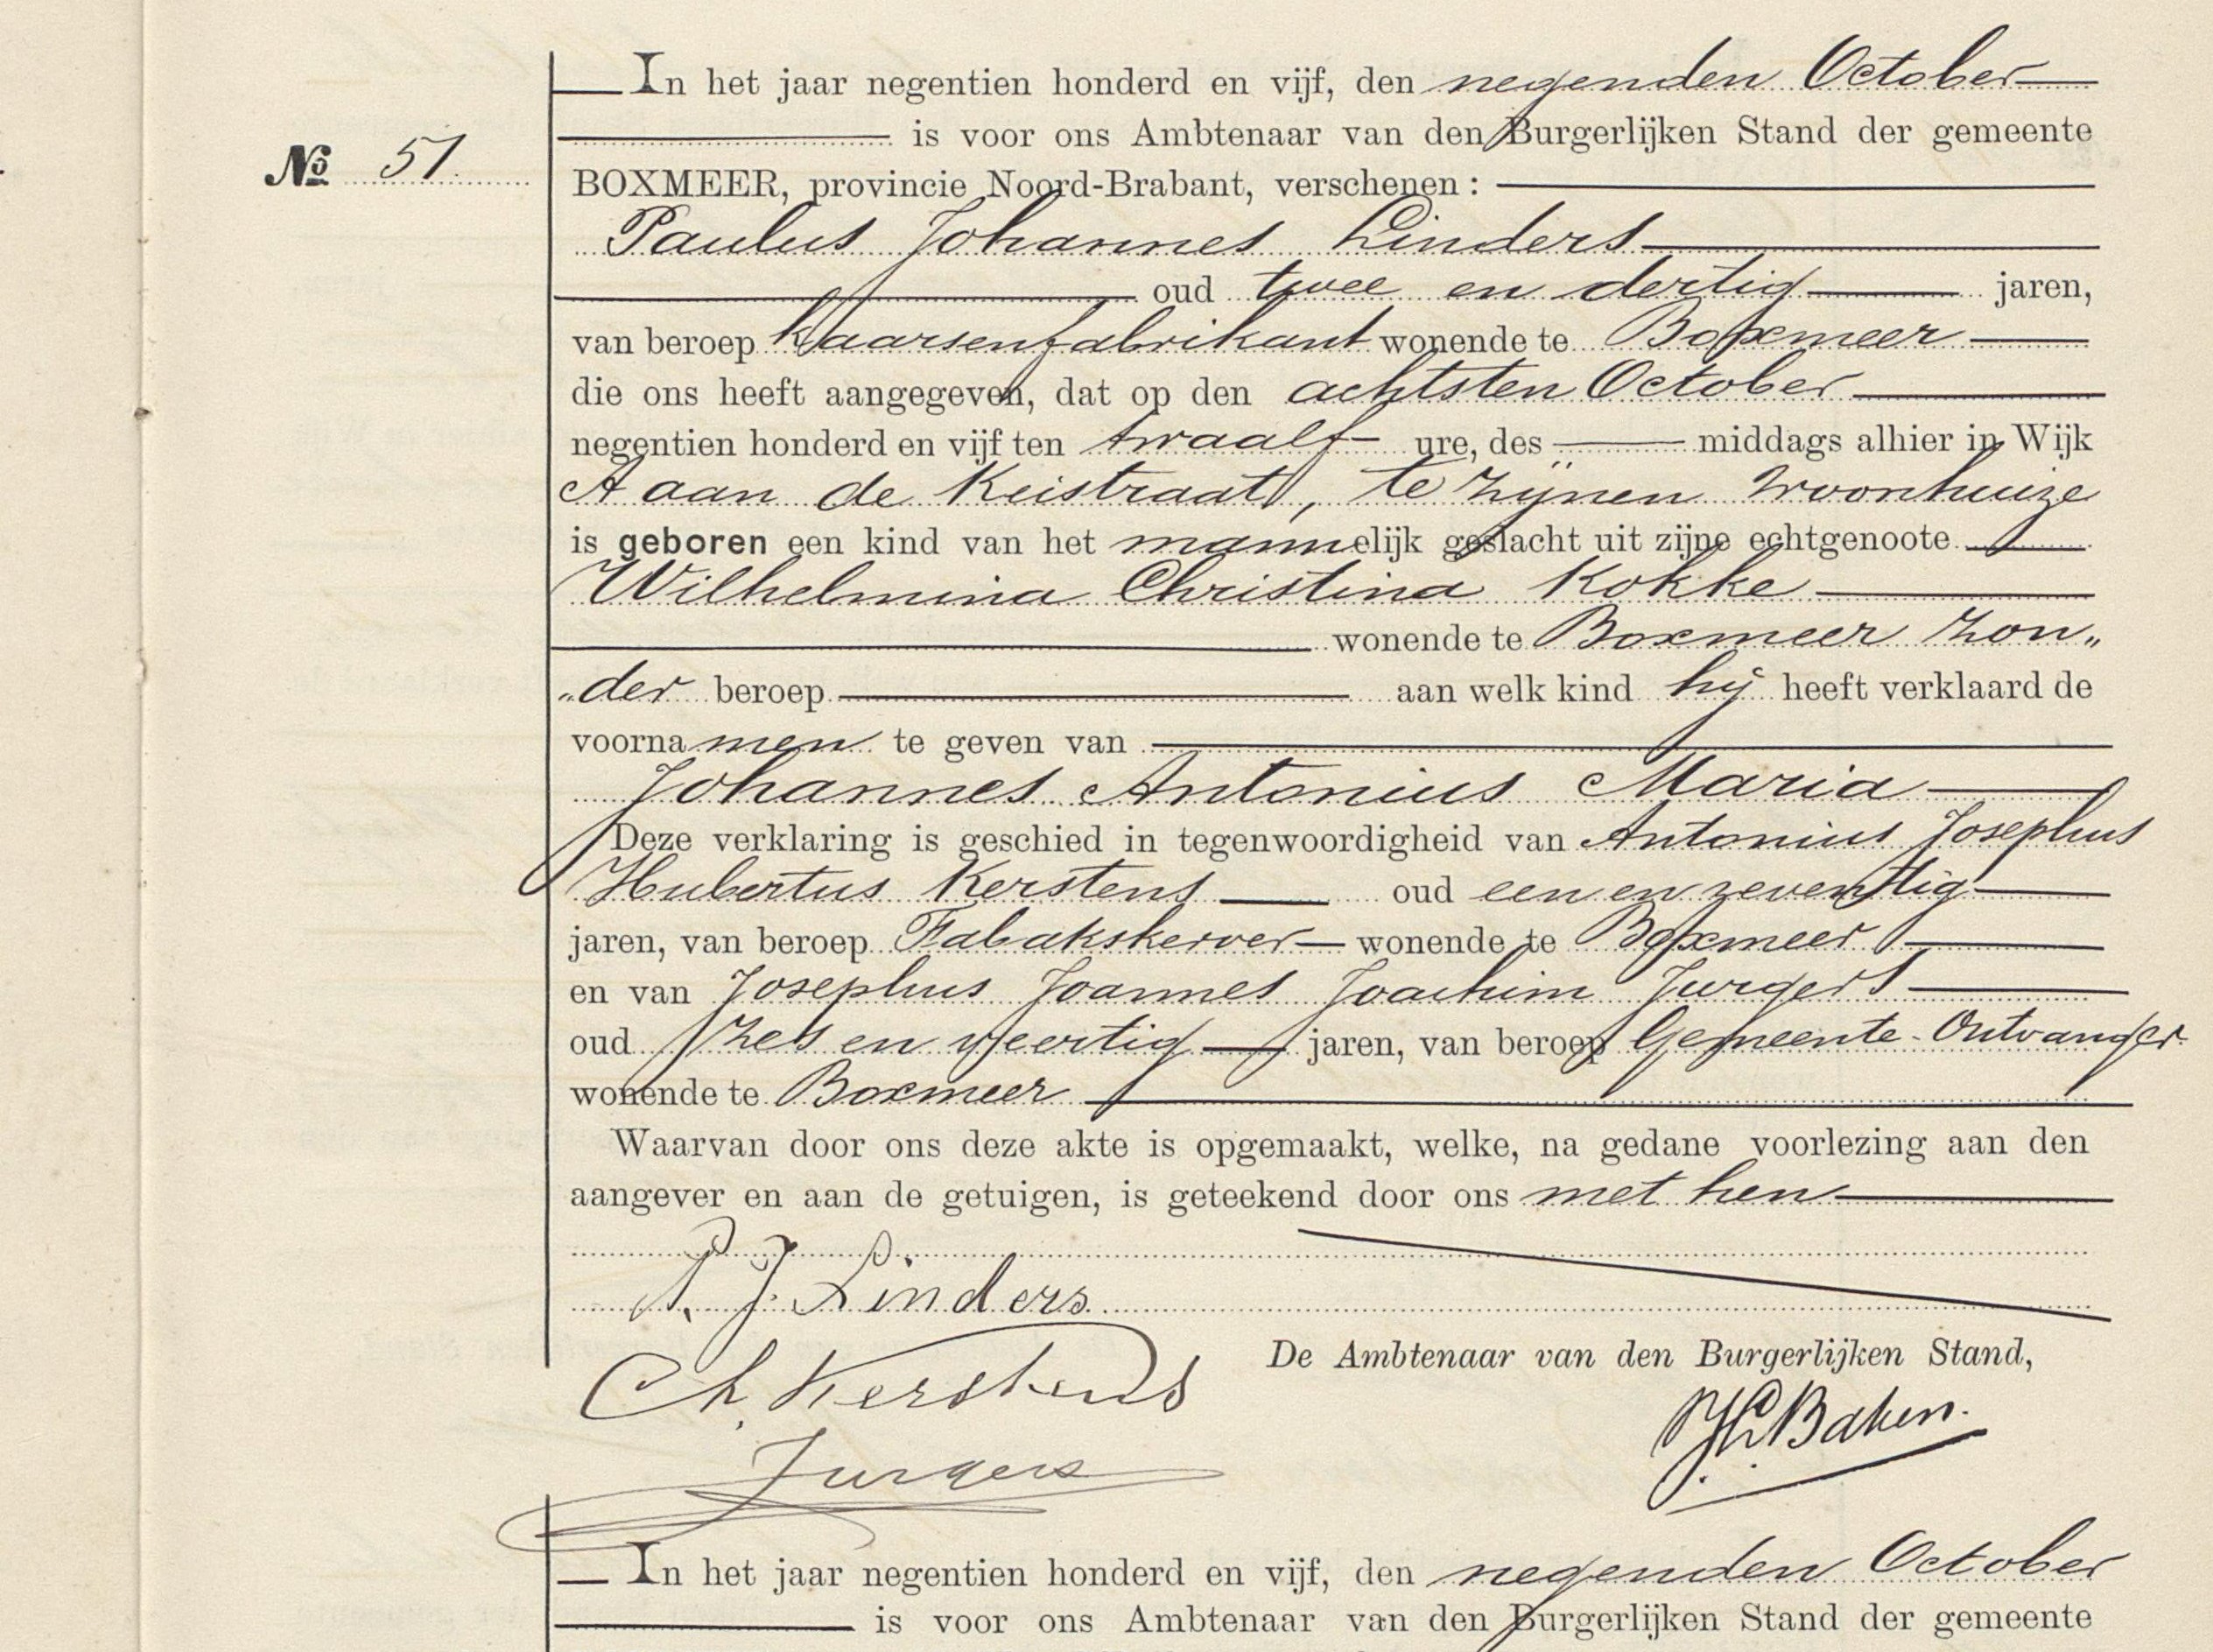 In het jaar negentien honderd en vijf, den negenden October
is voor ons Ambtenaar van den Burgerlijken Stand der gemeente
No 51.
BOXMEER, provincie Noord-Brabant, verschenen:
Paulus Johannes Linders
oud twee en dertig jaren,
van beroep Kaarsenfabrikant wonende te Boxmeer
die ons heeft aangegeven, dat op den achtsten October
negentien honderd en vijf ten twaalf ure, des middags alhier in Wijk
A aan de Keistraat, te zijnen woonhuize
is geboren een kind van het mannelijk geslacht uit zijne echtgenoote
Wilhelmina Christina Kokke
wonende te Boxmeer zon„
„der beroep aan welk kind hij heeft verklaard de
voornamen te geven van
Johannes Antonius Maria
Deze verklaring is geschied in tegenwoordigheid van Antonius Josephus
Hubertus Kerstens oud een en zeventig
jaren, van beroep Tabakskerver wonende te Boxmeer
en van Josephus Joannes Joachim Jurgers
oud zes en veertig jaren, van beroep Gemeente-Ontvanger
wonende te Boxmeer
Waarvan door ons deze akte is opgemaakt, welke, na gedane voorlezing aan den
aangever en aan de getuigen, is geteekend door ons met hen
P. J. Linders
De Ambtenaar van den Burgerlijken Stand,
Kerstens
Jurgers
In het jaar negentien honderd en vijf, den negenden October
is voor ons Ambtenaar van den Burgerlijken Stand der gemeente